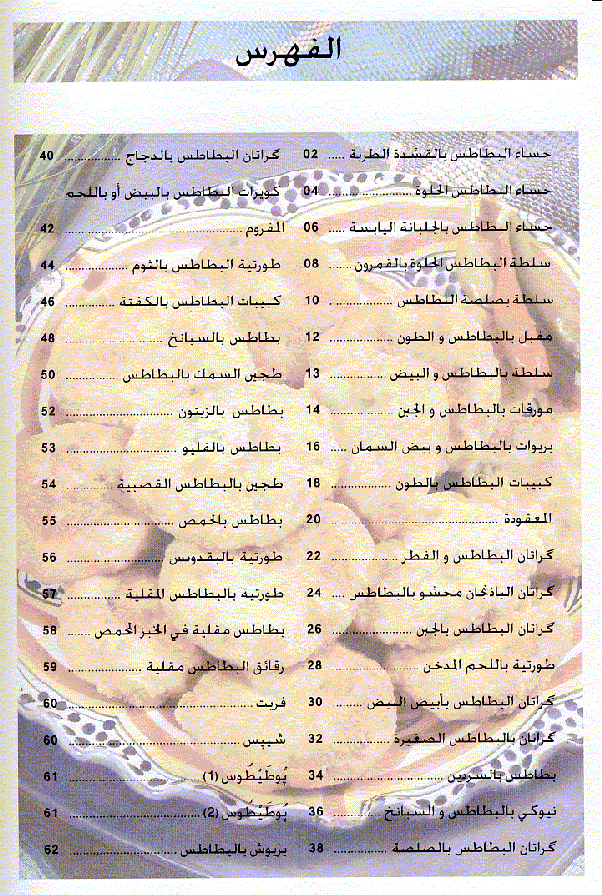 الفهرس
حساء البطاطس بالقشدة الطرية ..... 02
حساء البطاطس الحلوة ..... 04
حساء البطاطس بالجلبانة اليابسة ..... 06
سلطة البطاطس الحلوة بالقمرون ..... 08
سلطة بصلصة البطاطس ..... 10
مقبل بالبطاطس و الطون ..... 12
سلطة بالبطاطس و البيض ..... 13
مورقات بالبطاطس و الجبن ..... 14
بريوات بالبطاطس و بيض السمان ..... 16
كبيبات البطاطس بالطون ..... 18
المعقودة ..... 20
گراتان البطاطس و الفطر ..... 22
گراتان الباذنجان محشو بالبطاطس ..... 24
گراتان البطاطس بالجبن ..... 26
طورتية باللحم المدخن ..... 28
گراتان البطاطس بأبيض البيض ..... 30
گراتان بالبطاطس الصغيرة ..... 32
بطاطس بالسردين ..... 34
نيوكي بالبطاطس و السبانخ ..... 36
گراتان البطاطس بالصلصة ..... 38
گراتان البطاطس بالدجاج ..... 40
كويرات البطاطس بالبيض أو باللحم
المفروم ..... 42
طورتية البطاطس بالثوم ..... 44
كبيبات البطاطس بالكفتة ..... 46
بطاطس بالسبانخ ..... 48
طجين السمك بالبطاطس ..... 50
بطاطس بالزيتون ..... 52
بطاطس بالفليو ..... 53
طجين بالبطاطس القصبية ..... 54
بطاطس بالحمص ..... 55
طورتية بالبقدونس ..... 56
طورتية بالبطاطس المقلية ..... 57
بطاطس مقلية في الخبز المحمص ..... 58
رقائق البطاطس مقلية ..... 59
فريت ..... 60
شيبس ..... 60
پُوطَيْطُوس (1) ..... 61
پُوطَيْطُوس (2) ..... 61
بريوش بالبطاطس ..... 62